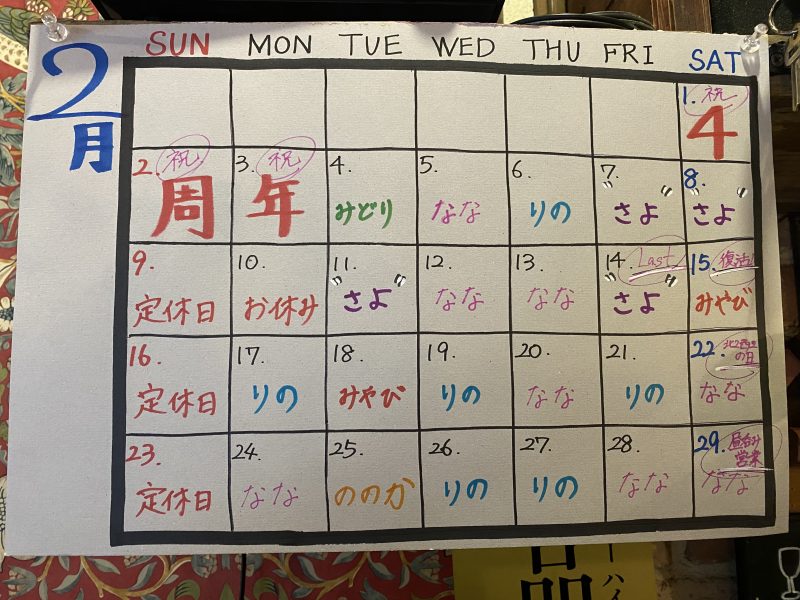 2月
SUN MON TUE WED THU FRI SAT
1. 祝
4
2. 祝
周
3. 祝
年
4.
みどり
5.
なな
6.
りの
7.
"さよ"
8.
"さよ"
9.
定休日
10.
お休み
11.
"さよ"
12.
なな
13.
なな
14. Last!
"さよ"
15. 復活!
みやび
16.
定休日
17.
りの
18.
みやび
19.
りの
20.
なな
21.
りの
22.
の日
なな
23.
定休日
24.
なな
25.
ののか
26.
りの
27.
りの
28.
なな
29. 昼呑み
営業
なな
ーハイ